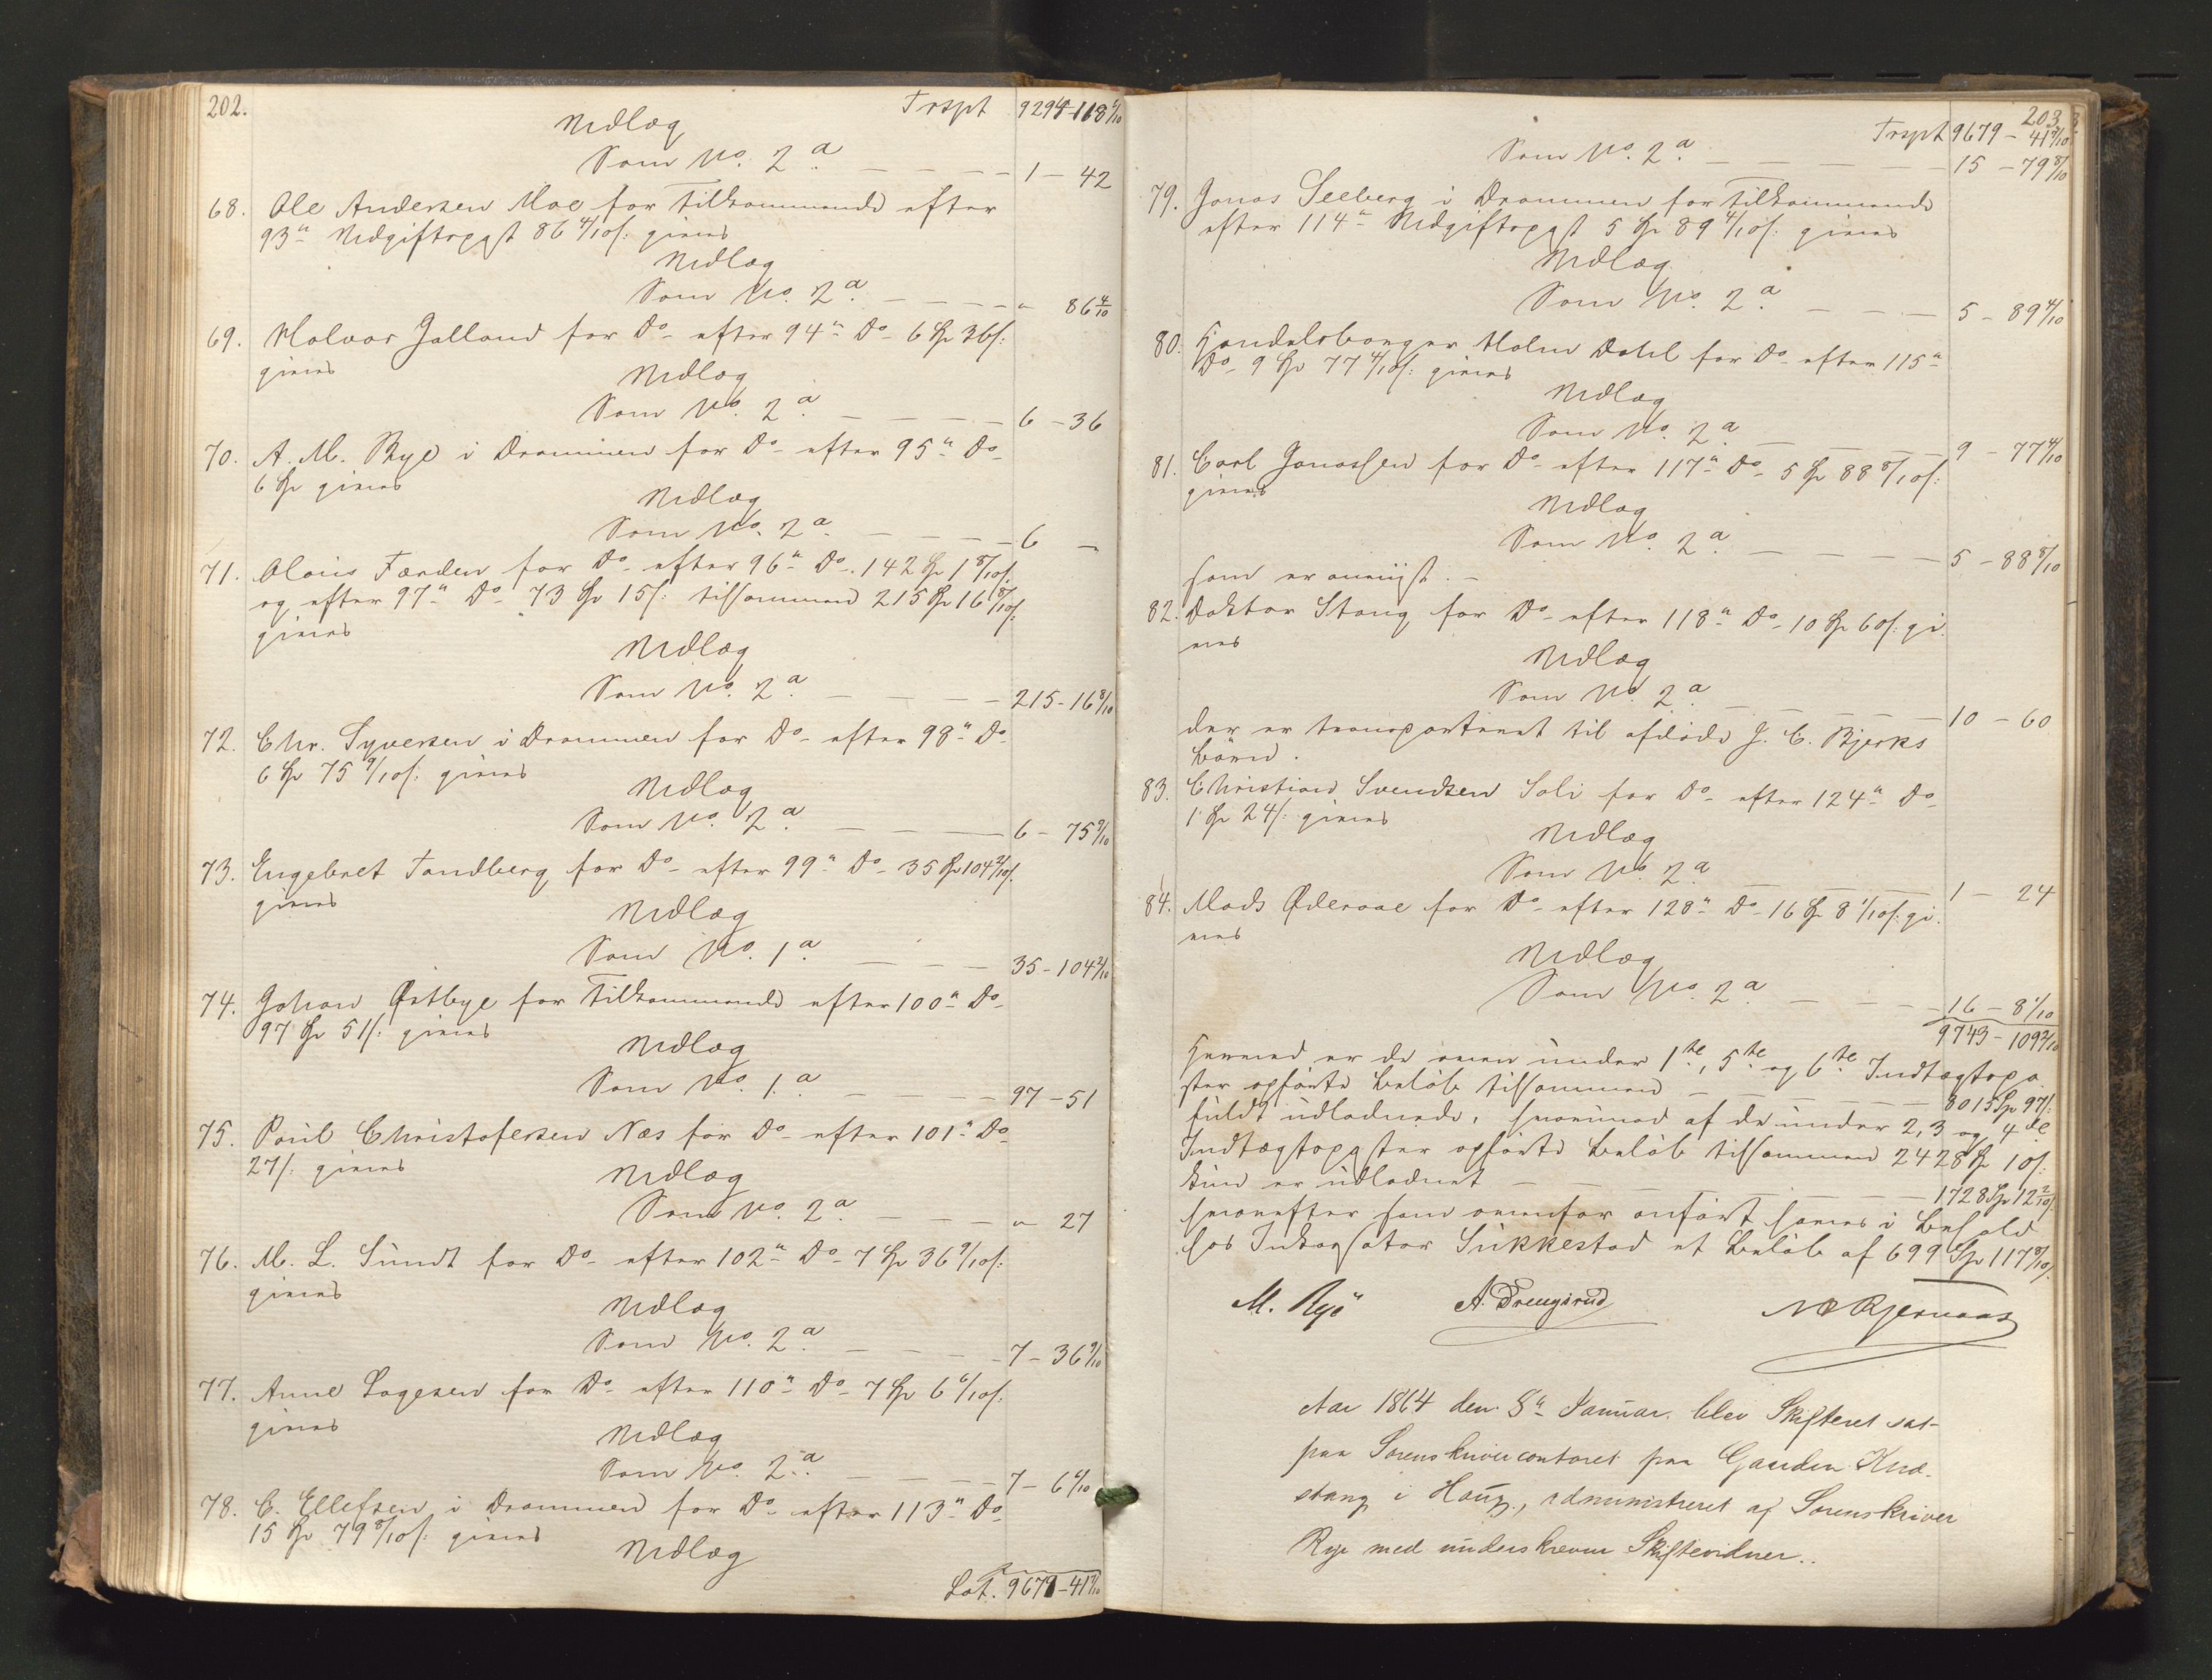 202.
Trspt 9294-118 6/10
Udlæg
Som No. 2a. — — — — 1 - 42
68. Ole Andersen Moe for Tilkommende efter
93de Udgiftspost 86 4/10 s: gives
Udlæg
Som No. 2a. — — — — " 86 4/10
69. Halvor Jalland for Do. efter 94de Do. 6 Sp 36 s:
gives
Udlæg
Som No. 2a. — — — — 6 - 36
70. A. M. Rye i Drammen for Do. efter 95de Do.
6 Sp gives
Udlæg
Som No. 2a. — — — — 6 —
71. Alovis Færden for Do. efter 96de Do. 142 Sp 1 8/10 s.
og efter 97de Do. 73 Sp 15 s: tilsammen 215 Sp 16 8/10 s:
gives
Udlæg
Som No. 2a. — — — — 215 - 16 8/10
72. Chr. Syversen i Drammen for Do. efter 98de Do.
6 Sp 75 9/10 s: gives
Udlæg
Som No. 2a. — — — — 6 - 75 9/10
73. Engebret Tandberg for Do. efter 99de Do. 35 Sp 104 2/10 s.
gives
Udlæg
Som No. 1a — — — 35 - 104 2/10
74. Johan Østbye for Tilkommende efter 100de Do.
97 Sp 51 s: gives
Udlæg
Som No. 1.a — — — — 97 - 51
75. Poul Christofersen Næs for Do. efter 101de Do.
27 s: gives
Udlæg
Som No. 2a. — — — " 27
76. M. L. Sundt for Do. efter 102de Do. 7 Sp 36 9/10 s:
gives
Udlæg
Som No. 2a. — — — — 7 - 36 9/10
77. Anne Lagesen for Do. efter 110de Do. 7 Sp 6 6/10 s:
gives
Udlæg
Som No. 2.a. — — — — 7 - 6 6/10
78. C. Ellefsen i Drammen for Do. efter 113de Do.
15 Sp 79 8/10 s: gives
Udlæg
Lat. 9679 - 41 7/10
203.
Trspt 9679 - 41 7/10
Som No. 2a. — — — — 15 - 79 8/10
79. Jonas Seeberg i Drammen for Tilkommende
efter 114de Udgiftspost 5 Sp 89 4/10 s: gives
Udlæg
Som No. 2a. — — — 5 - 89 4/10
80. Handelsborger Holm Dahl for Do. efter 115de
Do. 9 Sp 77 4/10 s: gives
Udlæg
Som No. 2a. — — — 9 - 77 4/10
81. Carl Jonassen for Do. efter 117de Do. 5 Sp 88 8/10 s:
gives
Udlæg
Som No. 2a. — — — — 5 - 88 8/10
som er anviist. —
82. Doktor Stang for Do. efter 118de Do. 10 Sp 60 s: gi-
ves
Udlæg
Som No. 2a. — — — — 10 - 60
der er transporteret til afdøde J. C. Bjerks
Børn.
83. Christian Svendsen Soli for Do. efter 124de Do.
1 Sp 24 s: gives
Udlæg
Som No. 2a. — — — — 1 - 24
84. Mads Øderaae for Do. efter 128de Do. 16 Sp 8 1/10 s: gi-
ves
Udlæg
Som No. 2a. — — — — 16 - 8 1/10
9743 - 109 2/10
Hermed er de oven under 1te, 5te og 6te Indtægtspo-
ster opførte Beløb tilsammen — — — — 8015 Sp 97 s:
fuldt udlodnede, hvorimod af de under 2, 3 og 4de
Indtægtsposter opførte Beløb tilsammen 2428 Sp 10 s:
kun er udlodnet — — — — 1728 Sp 12 2/10 s.
hvorefter som ovenfor anført haves i Behold
hos Inkassator Sukkestad et Beløb af 699 Sp 117 8/10 s.
M. Rye A. Drengsrud
Aar 1864 den 8de Januar blev Skifteret sat
paa Sorenskrivercontoret paa Gaarden Knæ-
stang i Haug, administreret af Sorenskriver
Rye med underskrevne Skiftevidner..